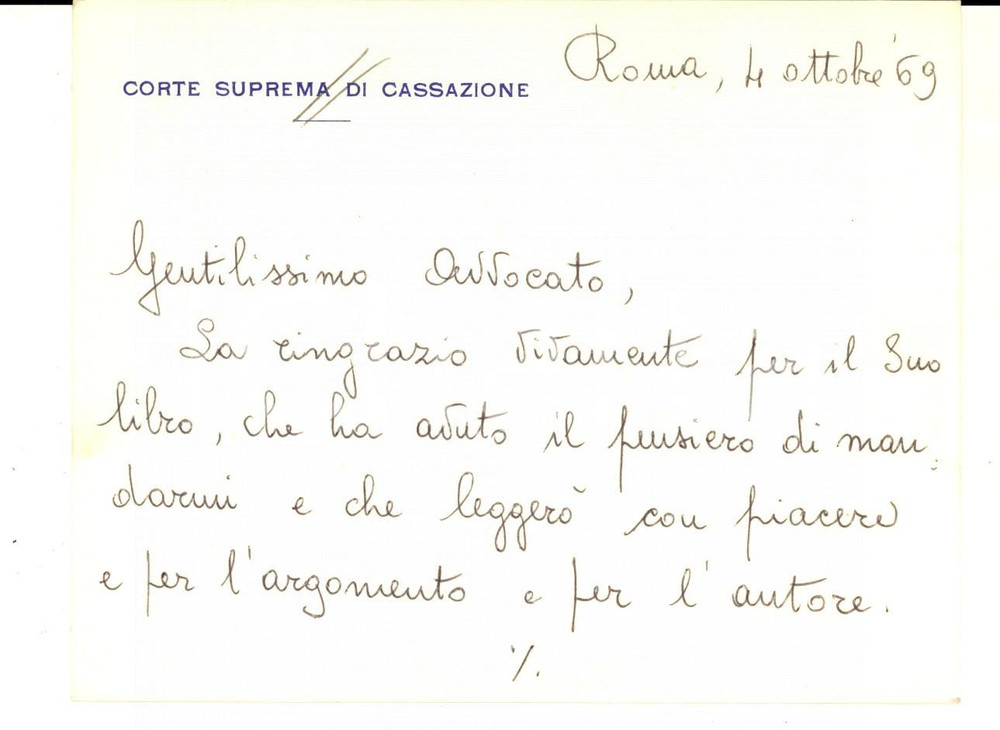 Roma, 4 ottobre '69
CORTE SUPREMA DI CASSAZIONE
Gentilissimo Avvocato,
La ringrazio vivamente per il Suo
libro, che ha avuto il pensiero di man-
darmi e che leggerò con piacere
e per l'argomento e per l'autore.
./.